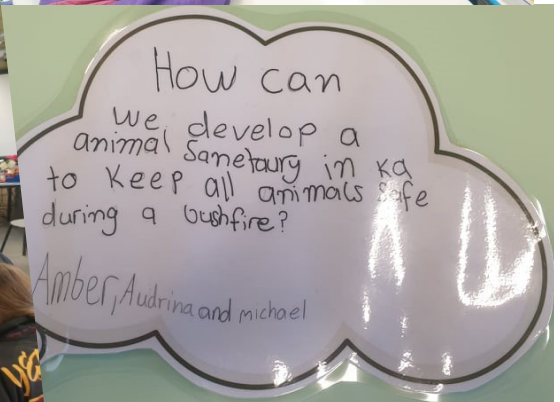 How can
we develop a
animal Sanetaury in ka
to keep all animals safe
during a bushfire?
Amber, Audrina and michael